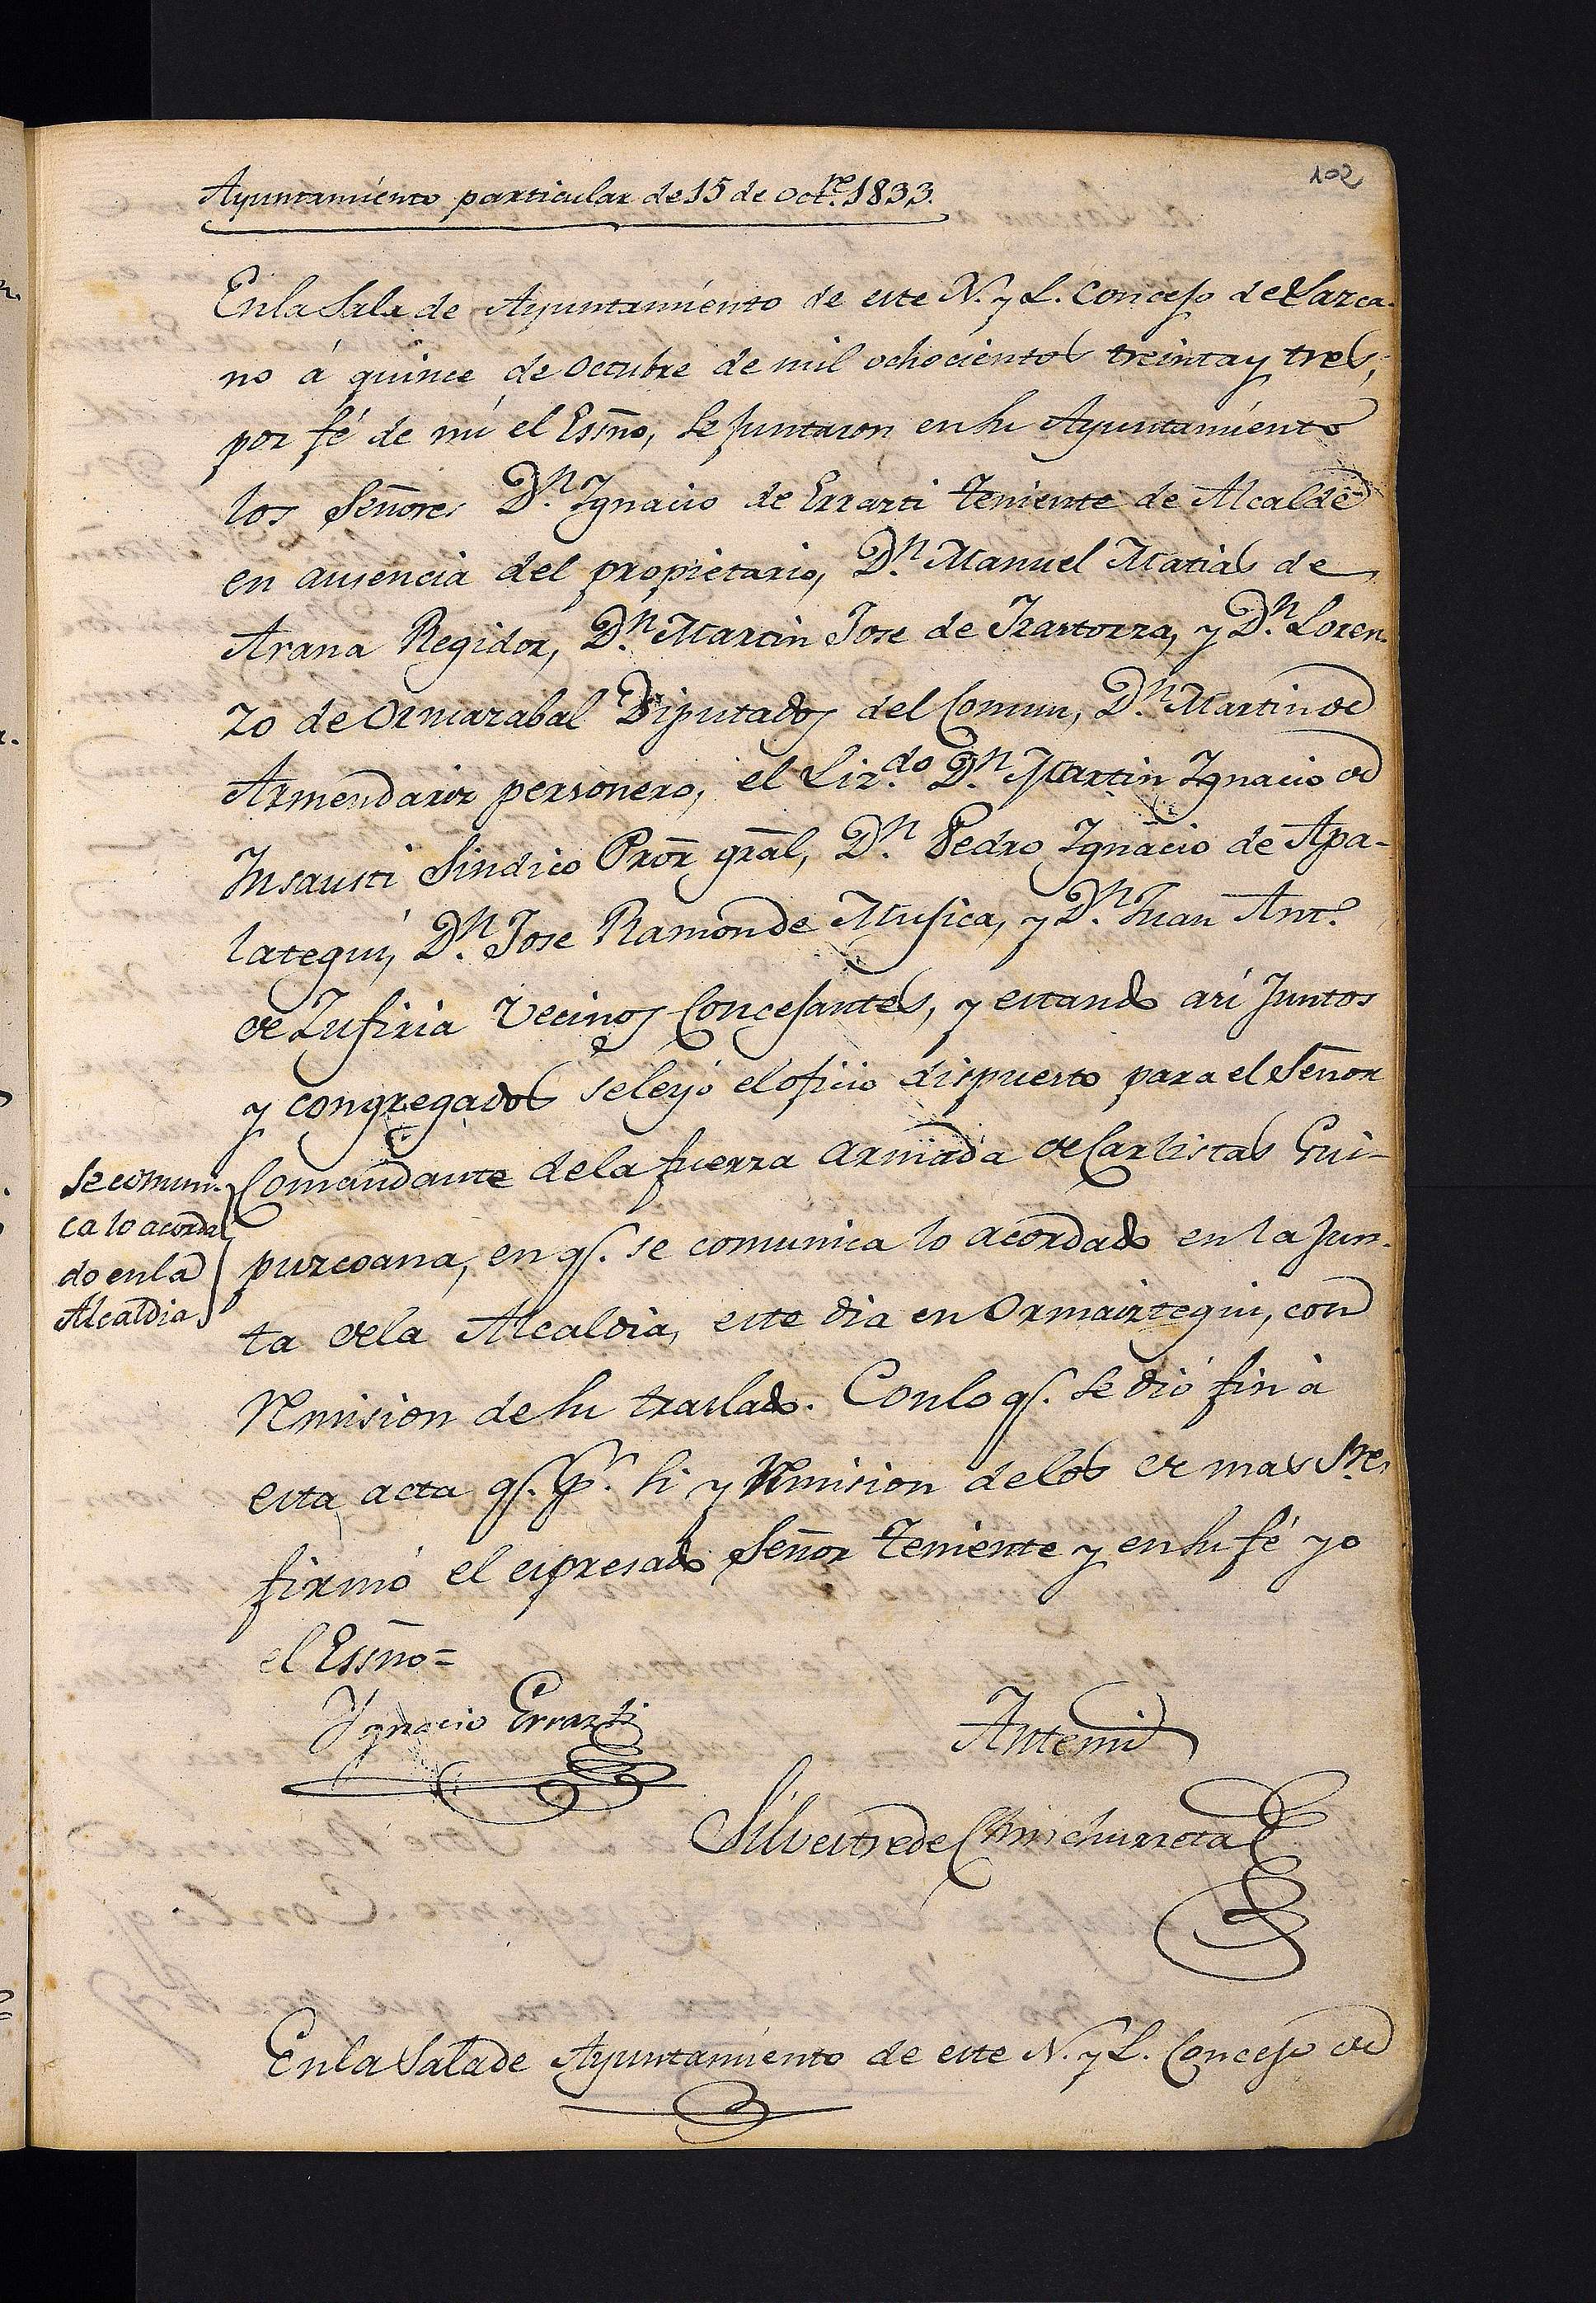 102
Ayuntamiento particular de 15 de Octre. 1833.
En la Sala de Ayuntamiento de este N. y L. Concejo de Lazca-
no á quince de Octubre de mil ochocientos treinta y tres,
por fé de mi el Essño, se juntaron en su Ayuntamiento
los Señores Dn. Ignacio de Errazti teniente de Alcalde
en ausencia del propietario, Dn. Manuel Matias de
Arana Regidor, Dn. Martin Jose de Izastorza, y Dn. Loren-
zo de Ormazabal Diputados del Comun, Dn. Martin de
Armendariz personero, el Lizdo. Dn. Martin Ignacio de
Insausti Sindico Pror gral, Dn. Pedro Ignacio de Apa-
lategui, Dn. Jose Ramon de Mujica, y Dn. Juan Anto.
de Zufiria Vecinos Concejantes, y estando asi juntos
y congregados se leyó el oficio dispuesto para el Señor
Comandante de la fuerza armada de Carlistas Gui-
puzcoana, en q. se comunica lo acordado en la Jun-
ta de la Alcaldia, este dia en Ormaiztegui, con
Remision de su traslado. Con lo q. se dió fin á
esta acta q. pr. si y Remision de los demas Sres.
firmó el espresado Señor teniente y en su fé yo
el Essño=
Se comuni-
ca lo acorda
do en la
Alcaldia
Ygnacio Errazti
Antemi
Silvestre de Chinchurreta
En la Sala de Ayuntamiento de este N. y L. Concejo de